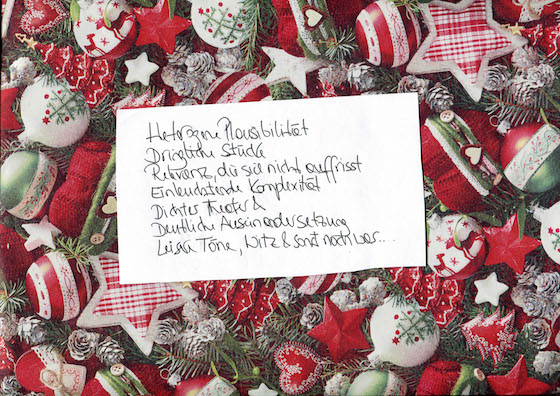 Heterogene Plausibilität
Dringliche Stücke
Relevanz, die sie nicht auffrisst
Einleuchtende Komplexität
Dichtes Theater &
Deutliche Auseinandersetzung
Leise Töne, Witz & sonst noch was...